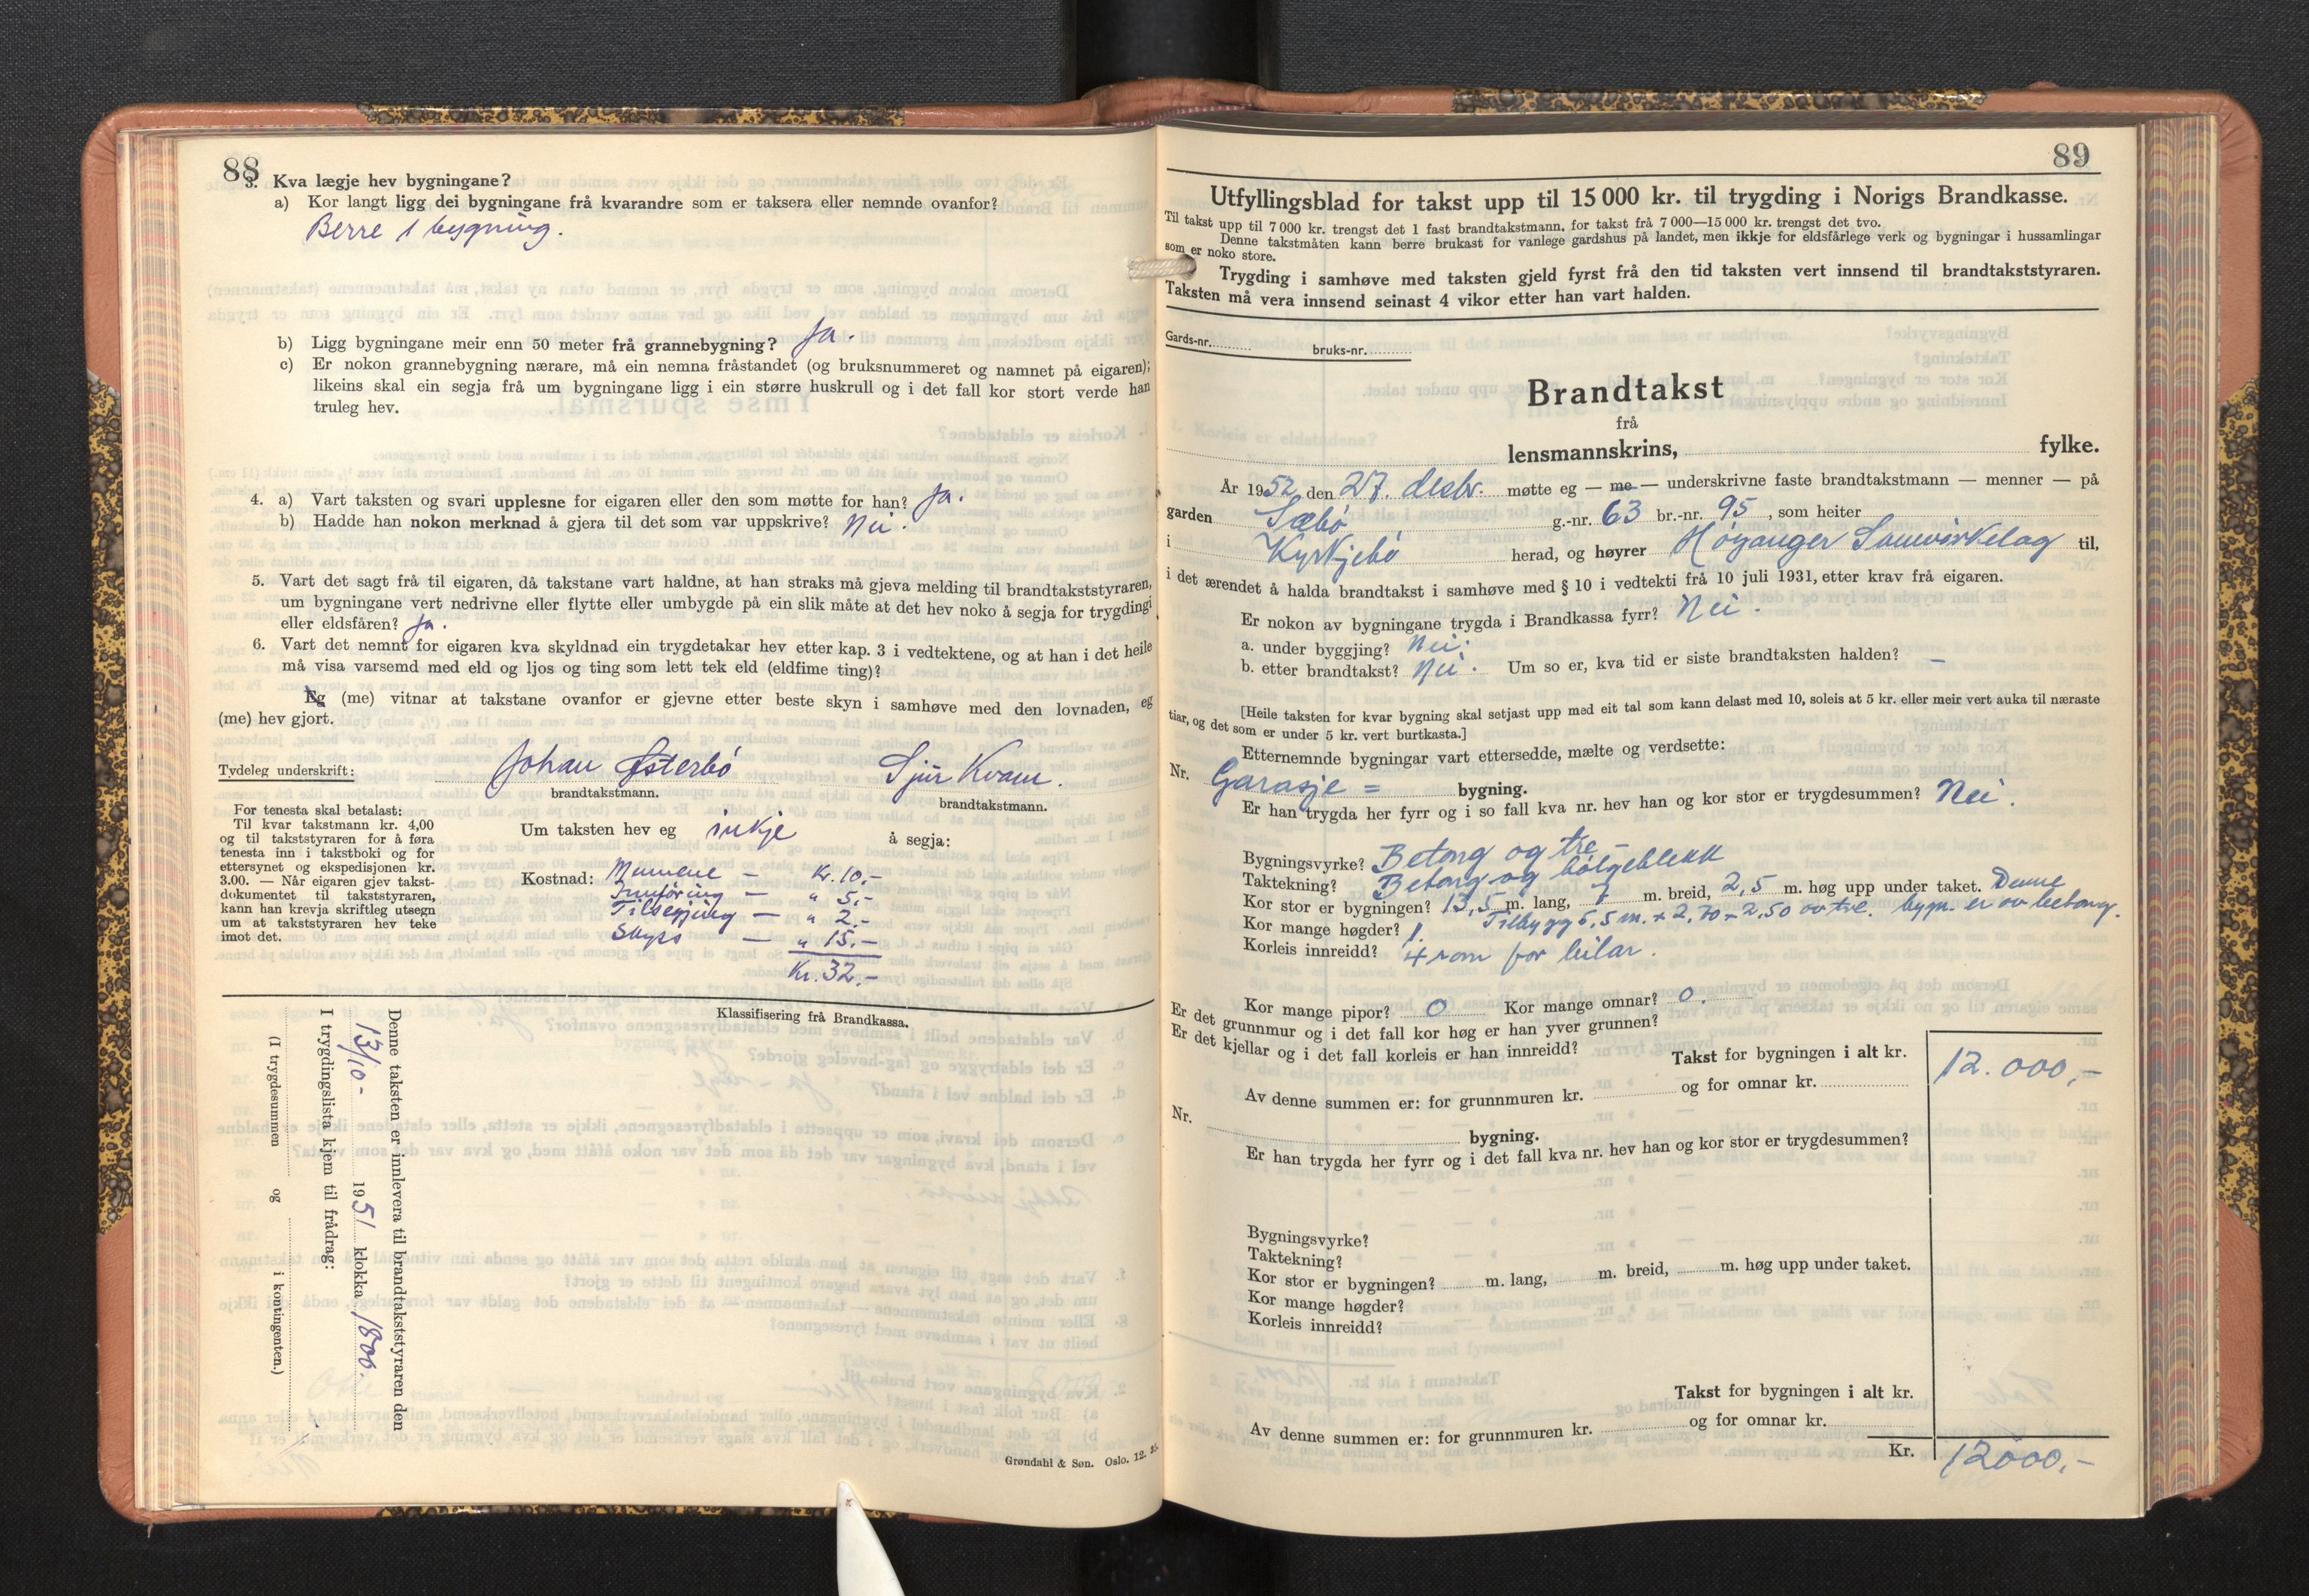 88
3. Kva lægje hev bygningane?
a) Kor langt ligg dei bygningane frå kvarandre som er taksera eller nemnde ovanfor?
Berre 1 bygning.
b) Ligg bygningane meir enn 50 meter frå grannebygning? Ja.
c) Er nokon grannebygning nærare, må ein nemna fråstandet (og bruksnummeret og namnet på eigaren);
likeins skal ein segja frå um bygningane ligg i ein større huskrull og i det fall kor stort verde han
truleg hev.
4. a) Vart taksten og svari upplesne for eigaren eller den som møtte for han? Ja.
b) Hadde han nokon merknad å gjera til det som var uppskrive? Nei.
5. Vart det sagt frå til eigaren, då takstane vart haldne, at han straks må gjeva melding til brandtakststyraren,
um bygningane vert nedrivne eller flytte eller umbygde på ein slik måte at det hev noko å segja for trygdingi
eller eldsfåren? Ja.
6. Vart det nemnt for eigaren kva skyldnad ein trygdetakar hev etter kap. 3 i vedtektene, og at han i det heile
må visa varsemd med eld og ljos og ting som lett tek eld (eldfime ting)?
Eg (me) vitnar at takstane ovanfor er gjevne etter beste skyn i samhøve med den lovnaden, eg
(me) hev gjort.
Tydeleg underskrift: Johan Østerbø Sjur Kvam.
brandtakstmann. brandtakstmann.
For tenesta skal betalast:
Til kvar takstmann kr. 4,00
og til takststyraren for å føra
tenesta inn i takstboki og for
ettersynet og ekspedisjonen kr.
3.00. — Når eigaren gjev takst-
dokumentet til takststyraren,
kann han krevja skriftleg utsegn
um at takststyraren hev teke
imot det.
Um taksten hev eg inkje å segja:
Kostnad: Mennene - Kr. 10.-
Innføring - " 5.-
Tilsegjing - " 2.-
Skyss - " 15.-
Kr. 32.-
Klassifisering frå Brandkassa.
Denne taksten er innlevera til brandtakststyraren den
13/10- 1951 klokka 1800.
I trygdingslista kjem til frådrag:
(I trygdesummen og i kontingenten.)
Grøndahl & Søn. Oslo. 12.
89
Utfyllingsblad for takst upp til 15 000 kr. til trygding i Norigs Brandkasse.
Til takst upp til 7 000 kr. trengst det 1 fast brandtakstmann, for takst frå 7 000—15 000 kr. trengst det tvo.
Denne takstmåten kann berre brukast for vanlege gardshus på landet, men ikkje for eldsfårlege verk og bygningar i hussamlingar
som er noko store.
Trygding i samhøve med taksten gjeld fyrst frå den tid taksten vert innsend til brandtakststyraren.
Taksten må vera innsend seinast 4 vikor etter han vart halden.
Gards-nr. bruks-nr.
Brandtakst
frå
lensmannskrins, fylke.
År 1952 den 27. desbr. møtte eg — me — underskrivne faste brandtakstmann — menner — på
garden Sæbø g.-nr. 63 br.-nr. 95, som heiter
i Kyrkjebø herad, og høyrer Høyanger Samvirkelag til,
i det ærendet å halda brandtakst i samhøve med § 10 i vedtekti frå 10 juli 1931, etter krav frå eigaren.
Er nokon av bygningane trygda i Brandkassa fyrr? Nei.
a. under byggjing? Nei.
b. etter brandtakst? Nei. Um so er, kva tid er siste brandtaksten halden? -
[Heile taksten for kvar bygning skal setjast upp med eit tal som kann delast med 10, soleis at 5 kr. eller meir vert auka til næraste
tiar, og det som er under 5 kr. vert burtkasta.]
Etternemnde bygningar vart ettersedde, mælte og verdsette:
Nr. Garasje = bygning.
Er han trygda her fyrr og i so fall kva nr. hev han og kor stor er trygdesummen? Nei.
Bygningsvyrke? Betong og tre -
Taktekning? Betong og bølgeblekk
Kor stor er bygningen? 13,5 m. lang, 7 m. breid, 2,5 m. høg upp under taket. Denne
Tilbygg 5,5 m. x 2,70 - 2,50 av tre. bygn. er av betong.
Kor mange høgder? 1.
Korleis innreidd? 4 rom for bilar.
Kor mange pipor? 0 Kor mange omnar? 0.
Er det grunnmur og i det fall kor høg er han yver grunnen?
Er det kjellar og i det fall korleis er han innreidd?
Takst for bygningen i alt kr. 12.000,-
Av denne summen er: for grunnmuren kr. og for omnar kr.
Nr. bygning.
Er han trygda her fyrr og i det fall kva nr. hev han og kor stor er trygdesummen?
Bygningsvyrke?
Taktekning?
Kor stor er bygningen? m. lang, m. breid, m. høg upp under taket.
Kor mange høgder?
Korleis innreidd?
Takst for bygningen i alt kr.
Av denne summen er: for grunnmuren kr. og for omnar kr.
Kr. 12000,-